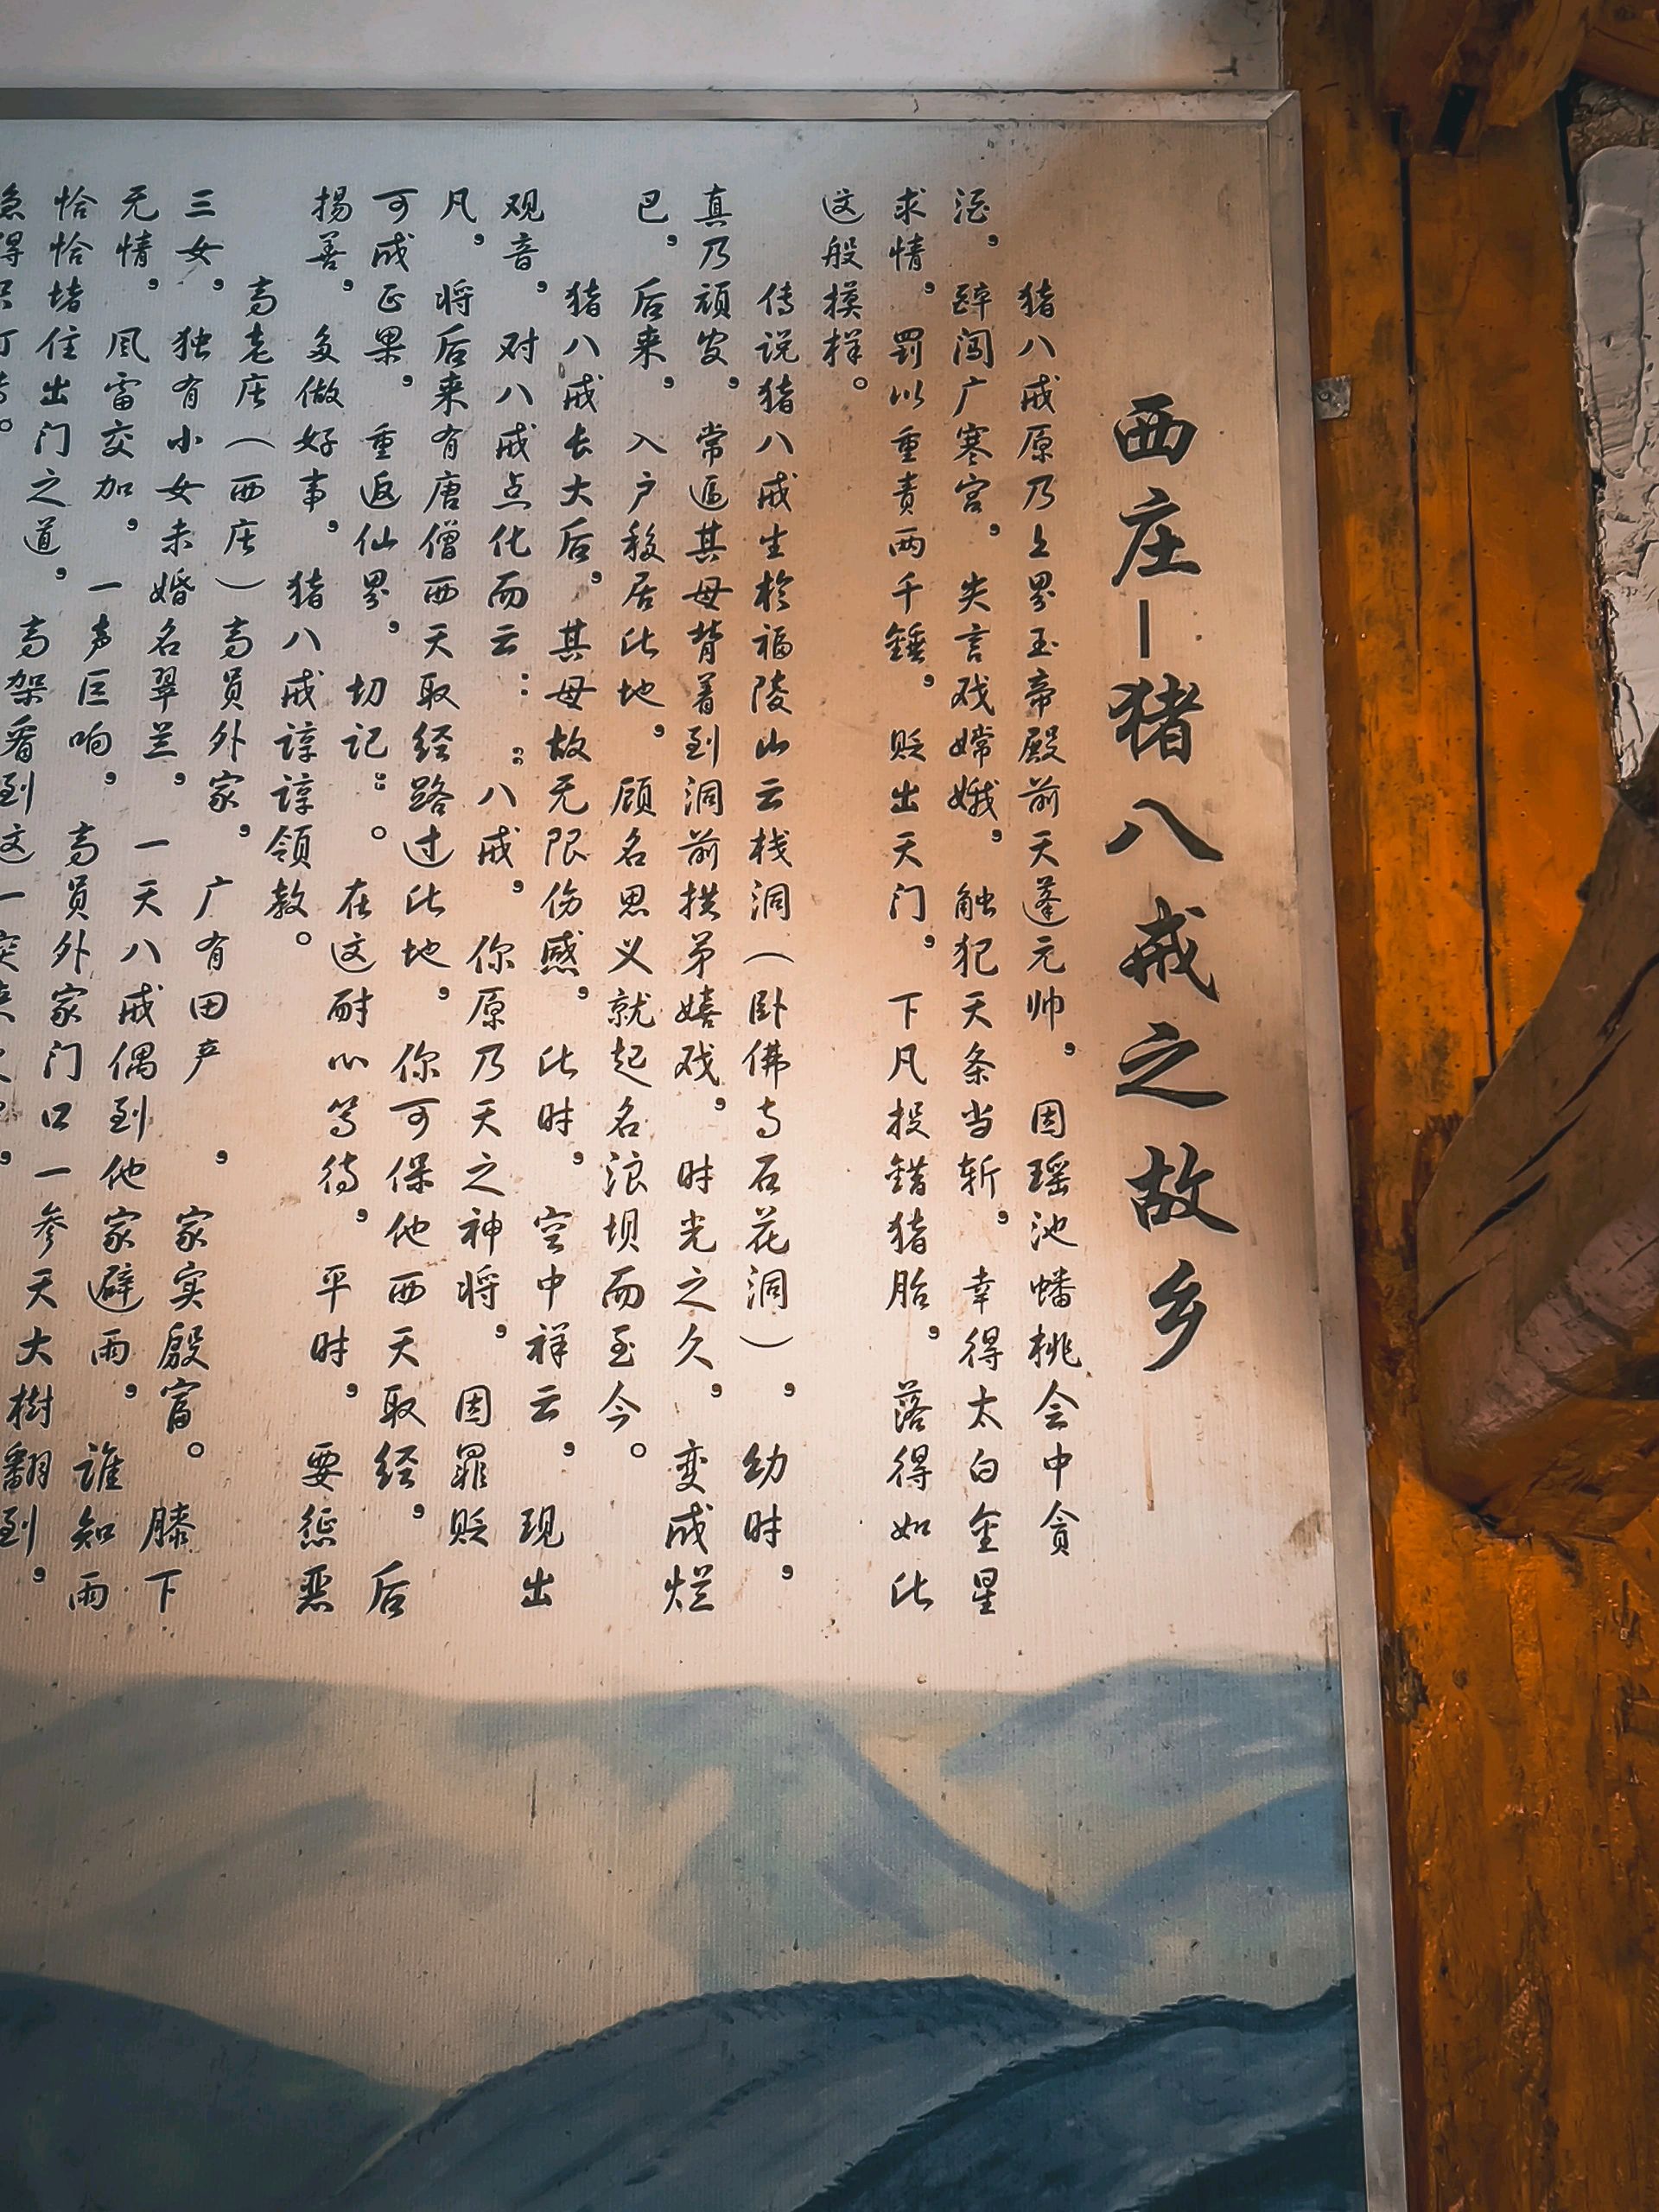 西庄—猪八戒之故乡
猪八戒原乃上界玉帝殿前天蓬元帅，因瑶池蟠桃会中贪
酒，醉闯广寒宫，失言戏嫦娥，触犯天条当斩，幸得太白金星
求情，罚以重责两千锤，贬出天门，下凡投错猪胎，落得如此
这般模样。
传说猪八戒生於福陵山云栈洞（卧佛寺石花洞），幼时，
真乃顽皮，常逼其母背着到洞前拱茅嬉戏，时光之久，变成烂
巴，后来，入户移居此地，顾名思义就起名浪坝而至今。
猪八戒长大后，其母故无限伤感，此时，空中祥云，现出
观音，对八戒点化而云：“八戒，你原乃天之神将，因罪贬
凡，将后来有唐僧西天取经路过此地，你可保他西天取经，后
可成正果，重返仙界，切记”。在这耐心等待，平时，要惩恶
扬善，多做好事，猪八戒谆谆领教。
高老庄（西庄）高员外家，广有田产，家实殷富。膝下
三女，独有小女未婚名翠兰，一天八戒偶到他家避雨，谁知雨
无情，风雷交加，一声巨响，高员外家门口一参天大樹翻到，
恰恰堵住出门之道，高架看到这一突
急得